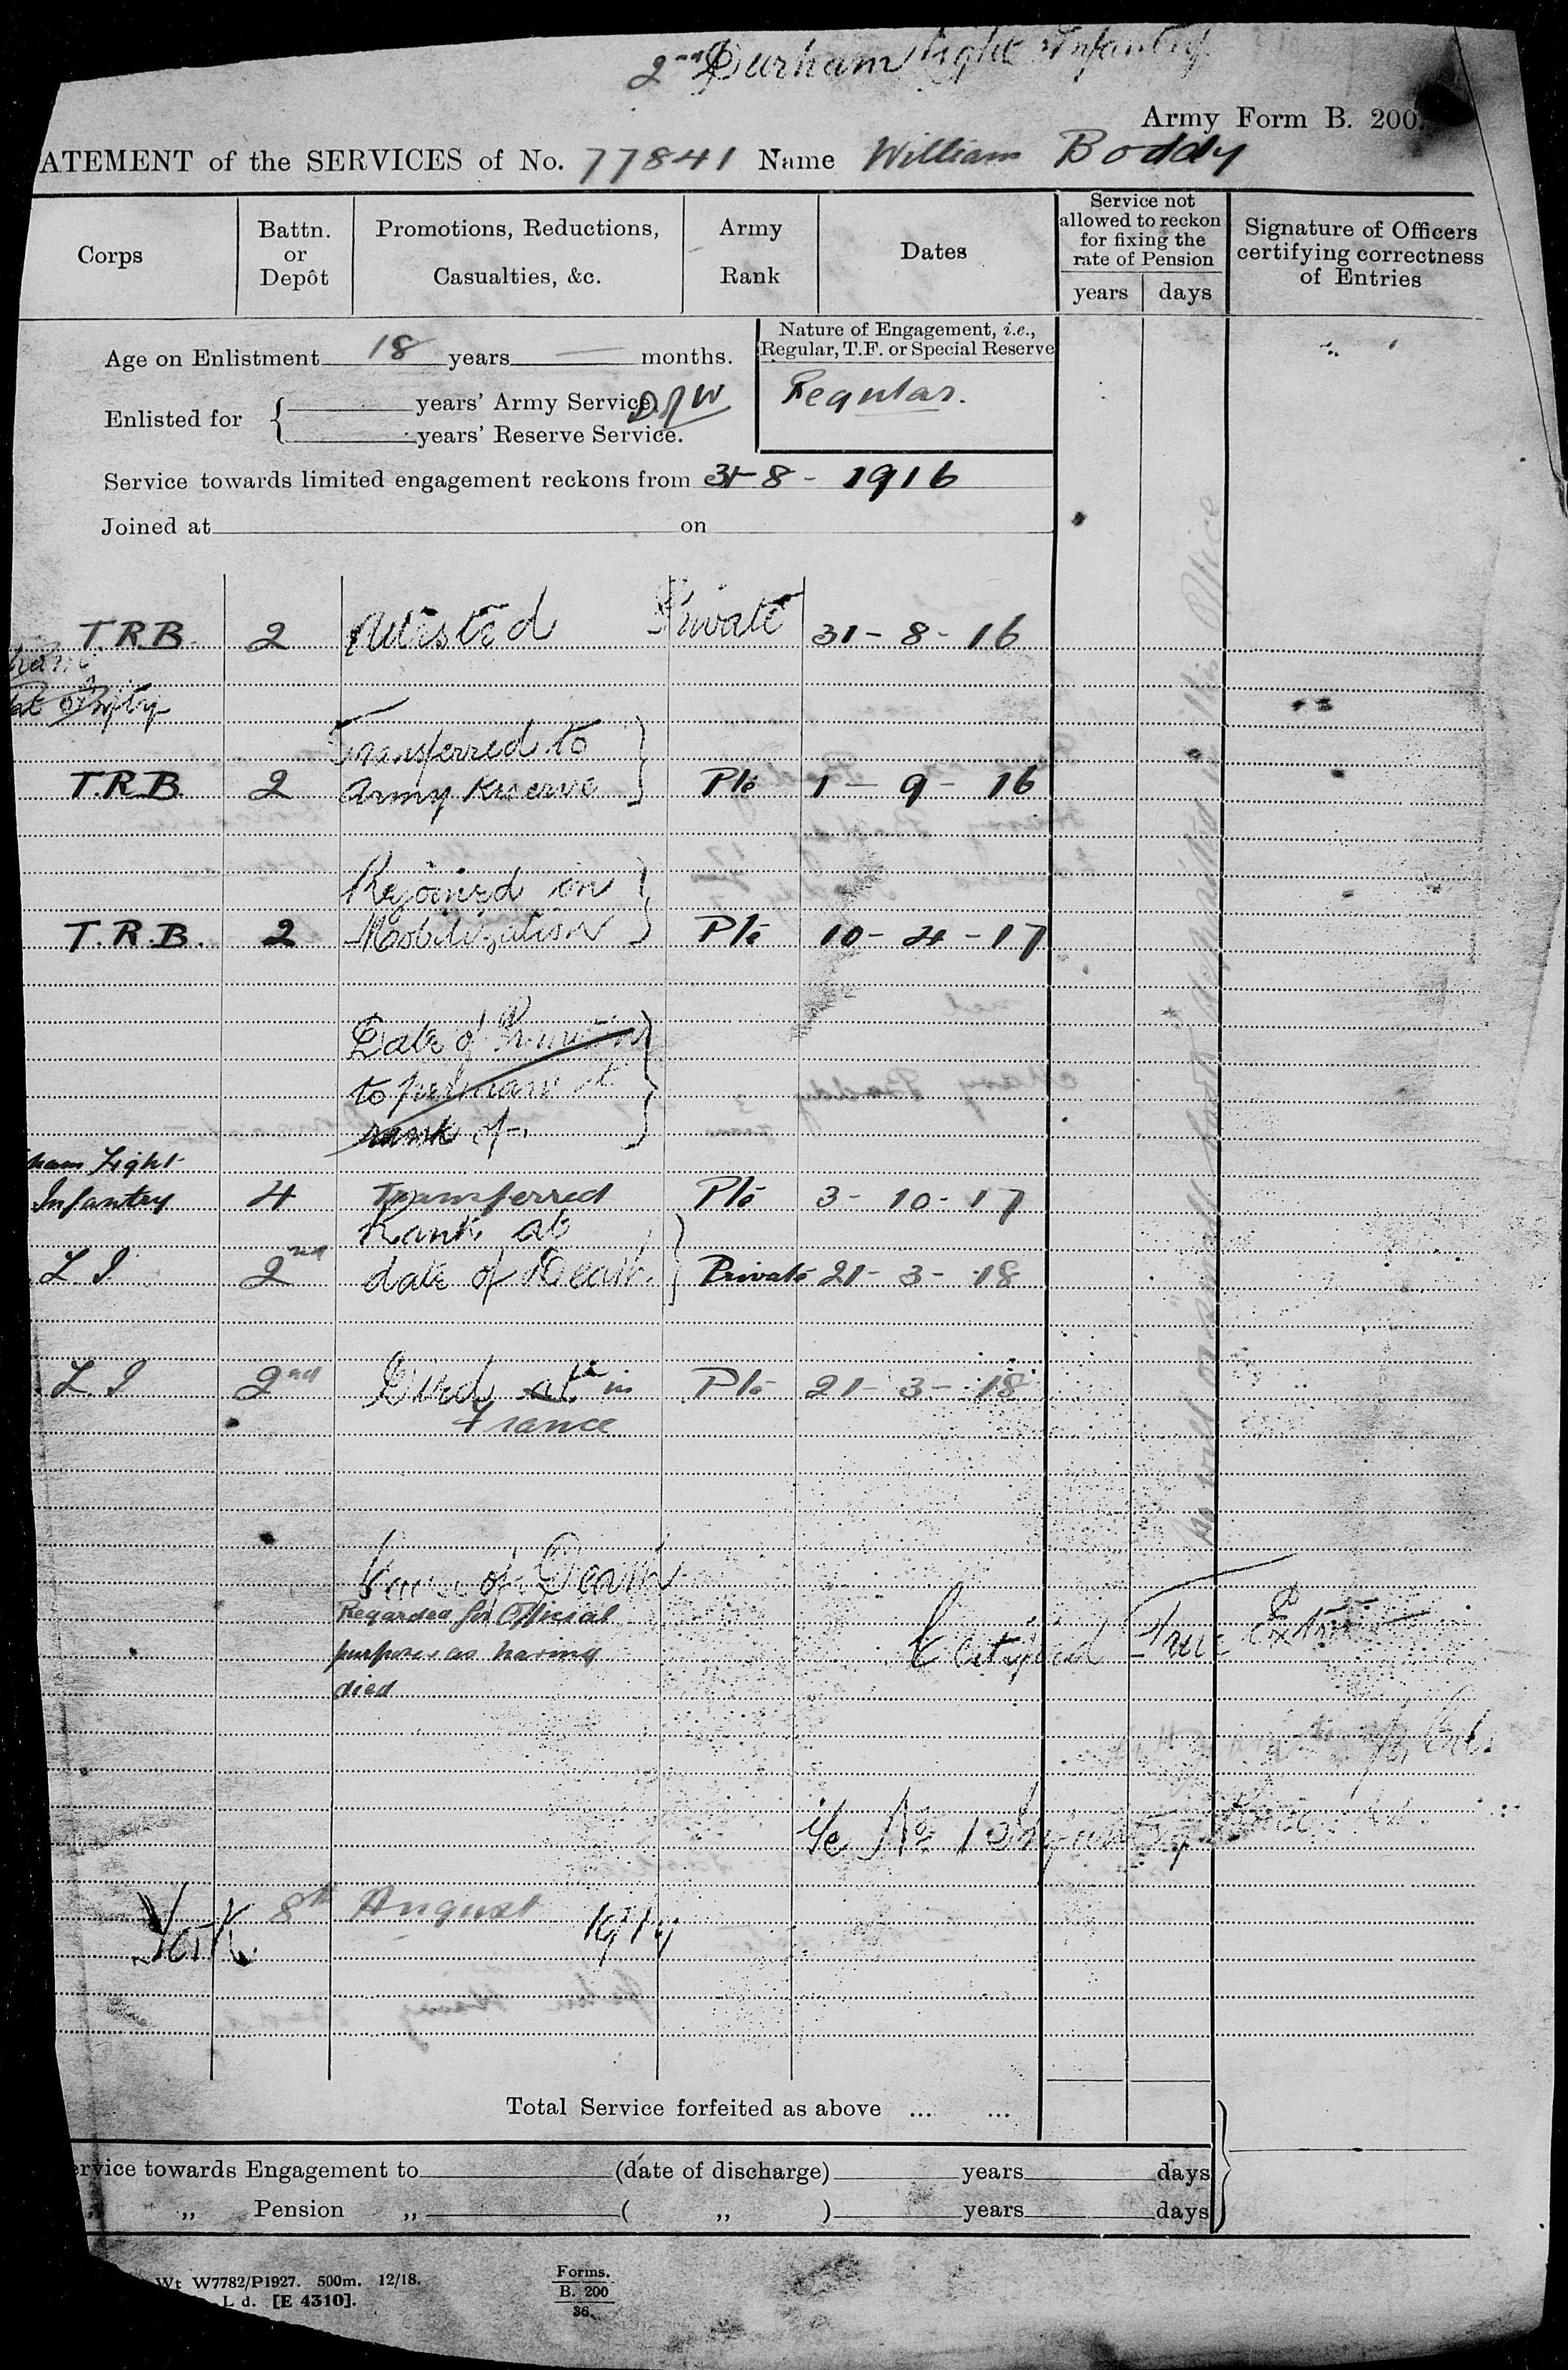 2nd Durham Light Infantry
Army Form B. 200.
ATEMENT of the SERVICES of No. 77841 Name William Boddy
Corps
Battn. or Depôt
Promotions, Reductions, Casualties, &c.
Army Rank
Dates
Service not allowed to reckon for fixing the rate of Pension
years days
Signature of Officers certifying correctness of Entries
Age on Enlistment 18 years — months.
Nature of Engagement, i.e., Regular, T.F. or Special Reserve
Regular.
Enlisted for { years' Army Service. D of W
years' Reserve Service.
Service towards limited engagement reckons from 31-8-1916
Joined at on
T.R.B. 2 Attested Private 31-8-16
Transferred to
T.R.B. 2 Army Reserve } Pte 1-9-16
Rejoined on
T.R.B. 2 Mobilization } Pte 10-4-17
Date of
to permanent
rank of
ham Light
Infantry 4 Transferred Pte 3-10-17
Rank at
L I 2nd date of Death. } Private 21-3-18
L. I 2nd Died at in Pte 21-3-18
France
Cause of Death
Regarded for Official
purposes as having
died
Certified True Extract
Col.
i/c No 1 Infantry Records
York. 8th August 1919
Total Service forfeited as above ... ...
ervice towards Engagement to (date of discharge) years days
„ Pension „ ( „ ) years days
Wt W7782/P1927. 500m. 12/18.
L d. [E 4310].
Forms.
B. 200
36.